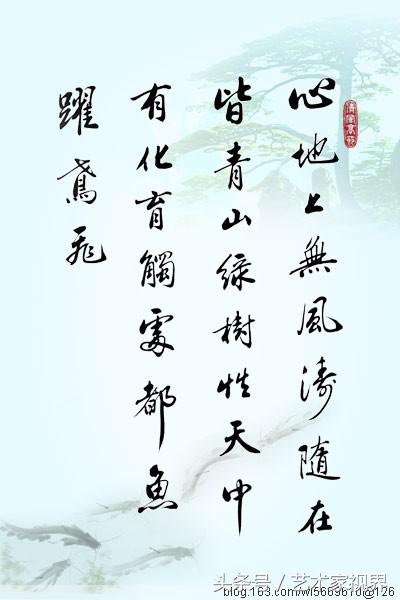 心地上無風濤隨在
皆青山綠樹性天中
有化育觸處都魚
躍鳶飛
头条号／艺术家视界
blog.163.com/wl566961d@126